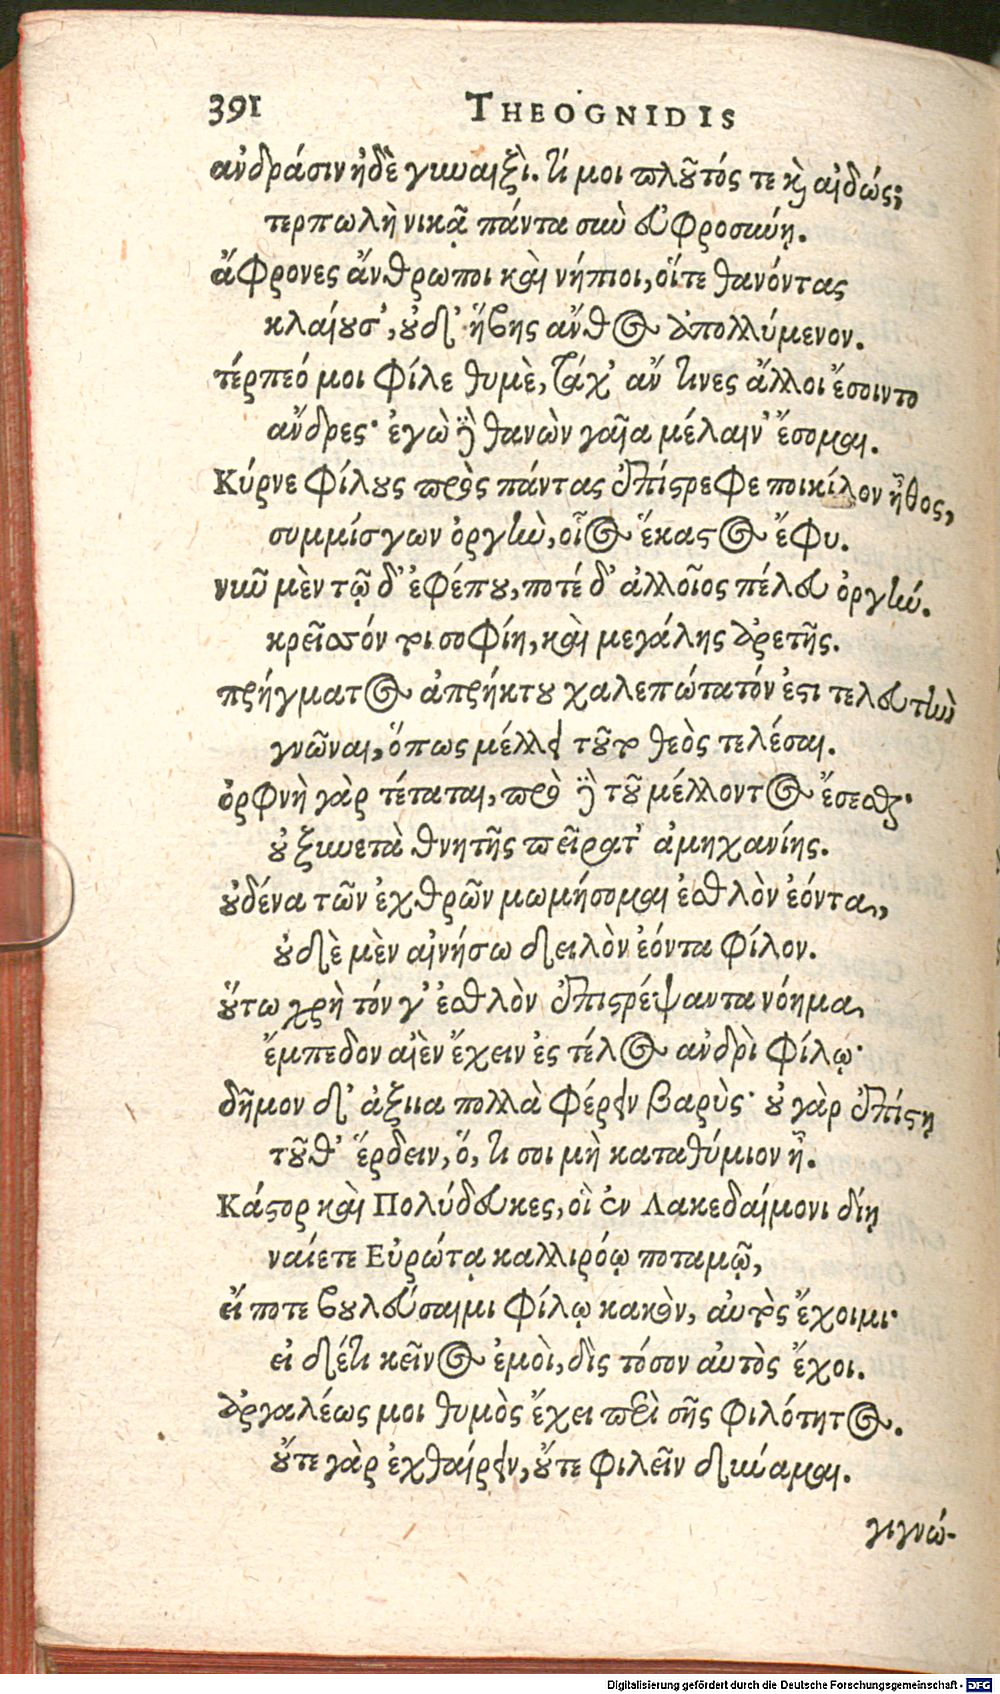 391 THEOGNIDIS
ἀνδράσιν ἠδὲ γυναιξί. τί μοι πλοῦτός τε καὶ αἰδώς;
τερπωλὴ νικᾷ πάντα σὺν εὐφροσύνῃ.
ἄφρονες ἄνθρωποι καὶ νήπιοι, οἵτε θανόντας
κλαίουσ', οὐδ' ἥβης ἄνθος ἀπολλύμενον.
τέρπεό μοι φίλε θυμὲ, τάχ' ἄν τινες ἄλλοι ἔσοιντο
ἄνδρες· ἐγὼ δὲ θανὼν γαῖα μέλαιν' ἔσομαι.
Κύρνε φίλους πρὸς πάντας ἐπίστρεφε ποικίλον ἦθος,
συμμίσγων ὀργὴν, οἷος ἕκαστος ἔφυ.
νῦν μὲν τῷ δ' ἐφέπου, ποτέ δ' ἀλλοῖος πέλευ ὀργήν.
κρεῖσσόν τοι σοφίη, καὶ μεγάλης ἀρετῆς.
πρήγματος ἀπρήκτου χαλεπώτατόν ἐστι τελευτὴν
γνῶναι, ὅπως μέλλει τοῦτο θεὸς τελέσαι.
ὀρφνὴ γὰρ τέταται, πρὸ δὲ τοῦ μέλλοντος ἔσεσθαι·
οὐ ξυνετὰ θνητῆς πείρατ' ἀμηχανίης.
οὐδένα τῶν ἐχθρῶν μωμήσομαι ἐσθλὸν ἐόντα,
οὐδὲ μὲν αἰνήσω δειλὸν ἐόντα φίλον.
οὕτω χρὴ τόν γ' ἐσθλὸν ἐπιστρέψαντα νόημα
ἔμπεδον αἰὲν ἔχειν ἐς τέλος ἀνδρὶ φίλῳ·
δῆμον δ' ἀξιια πολλὰ φέρειν βαρὺς· οὐ γὰρ ἐπίστῃ
τοῦθ' ἕρδειν, ὅ, τι σοι μὴ καταθύμιον ᾖ.
Κάστορ καὶ Πολύδευκες, οἳ ἐν Λακεδαίμονι δίῃ
ναίετε Εὐρώτᾳ καλλιρόῳ ποταμῷ,
εἴ ποτε βουλεύσαιμι φίλῳ κακὸν, αὐτὸς ἔχοιμι·
εἰ δέ τι κεῖνος ἐμοὶ, δὶς τόσον αὐτὸς ἔχοι.
ἀργαλέως μοι θυμὸς ἔχει περὶ σῆς φιλότητος.
οὔτε γὰρ ἐχθαίρειν, οὔτε φιλεῖν δύναμαι.
γιγνώ-
Digitalisierung gefördert durch die Deutsche Forschungsgemeinschaft - DFG